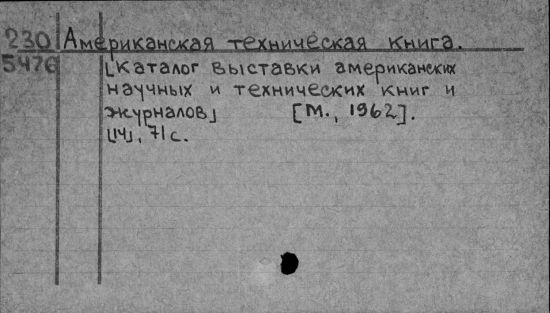 230 Американская техническая книга.
5426 [Каталог выставки американских
научных и технических книг и
журналов] [М., 1962].
[14], 71 с.